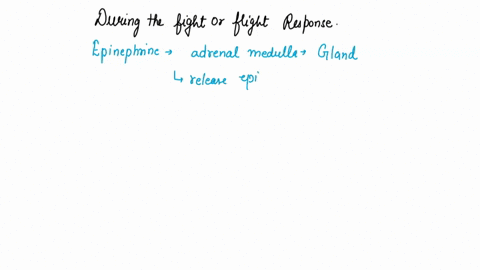 During the fight or flight Response.
Epinephrine → adrenal medulla → Gland
↳ release epi